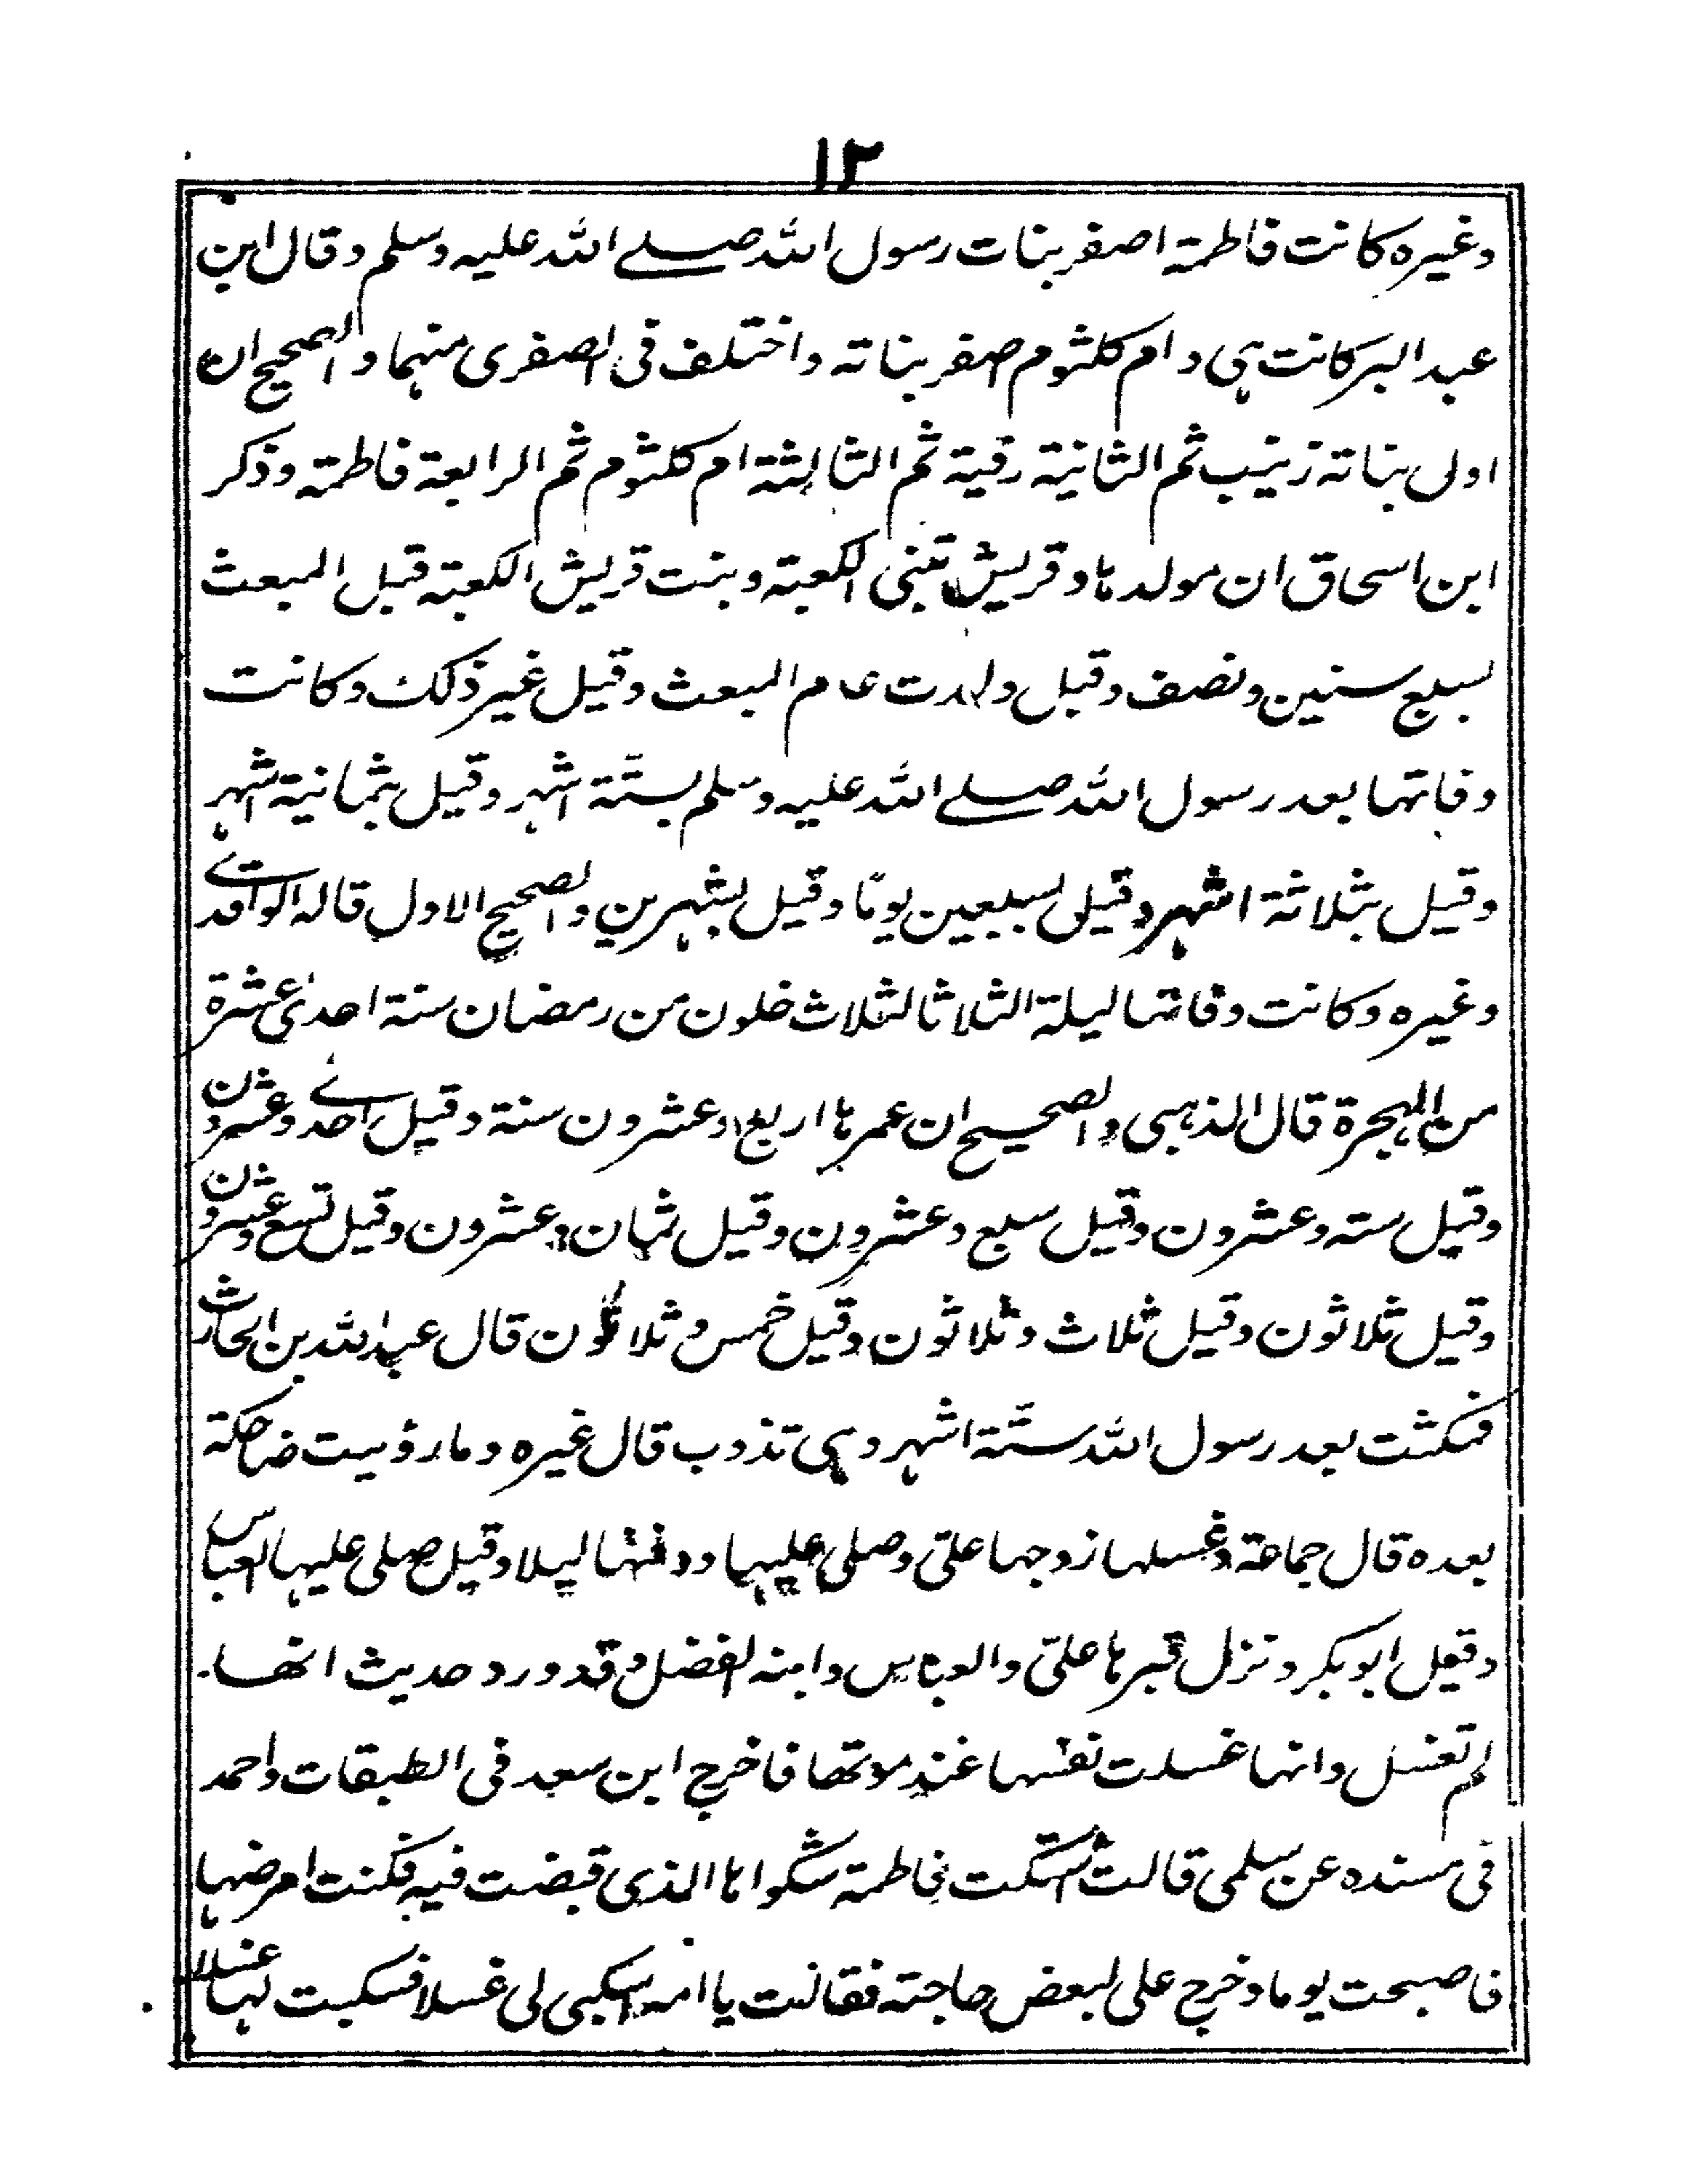 ١٢
وغيره كانت فاطمة اصغر بنات رسول الله صلے الله عليه وسلم وقال ابن
عبد البر كانت هى وام كلثوم صغر بناته واختلف فى الصغرى منهما والصحيح ان
اولى بناته زينب ثم الثانية رقية ثم الثالثة ام كلثوم ثم الرابعة فاطمة وذكر
ابن اسحاق ان مولدها وقريش تبنى الكعبة وبنت قريش الكعبة قبل المبعث
بسبع سنين ونصف وقيل ولدت عام المبعث وقيل غير ذلك وكانت
وفاتها بعد رسول الله صلے الله عليه وسلم بستّة اشهر وقيل بثمانية اشهر
وقيل بثلاثة اشهر وقيل بسبعين يومًا وقيل بشهرين والصحيح الاول قاله الواقدے
وغيره وكانت وفاتها ليلة الثلاثا لثلاث خلون من رمضان سنة احدى عشرة
من الهجرة قال الذهبى والصحيح ان عمرها اربع وعشرون سنة وقيل احدے وعشرون
وقيل سته وعشرون وقيل سبع وعشرون وقيل ثمان وعشرون وقيل تسع وعشرون
وقيل ثلاثون وقيل ثلاث وثلاثون وقيل خمس وثلاثون قال عبد الله بن الحارث
فمكثت بعد رسول الله ستّة اشهر وهى تذوب قال غيره وما رؤيت ضاحكة
بعده قال جماعة وغسلها زوجها علىّ وصلى عليها ودفنها ليلا وقيل صلى عليها العباس
وقيل ابو بكر ونزل قبرها علىّ والعباس وابنه الفضل وقد ورد حديث انها
لم تغسل وانها غسلت نفسها عند موتها فاخرج ابن سعد فى الطبقات واحمد
فى مسنده عن سلمى قالت اشتكت فاطمة شكواها الذى قبضت فيه فكنت امرضها
فاصبحت يوما وخرج على لبعض حاجته فقالت يا امه اسكبى لى غسلا فسكبت لها غسلا